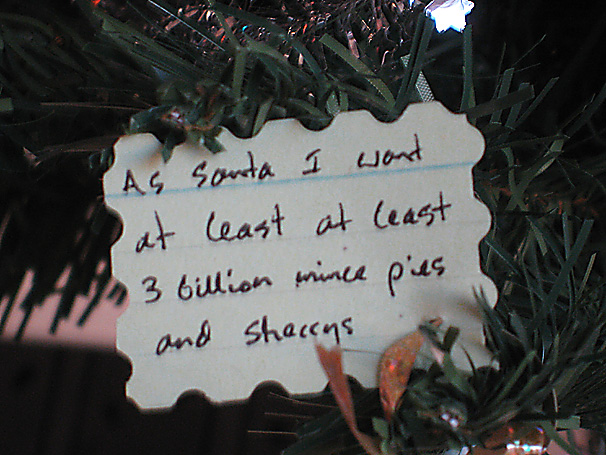 As Santa I want
at least at least
3 billion mince pies
and sherrys